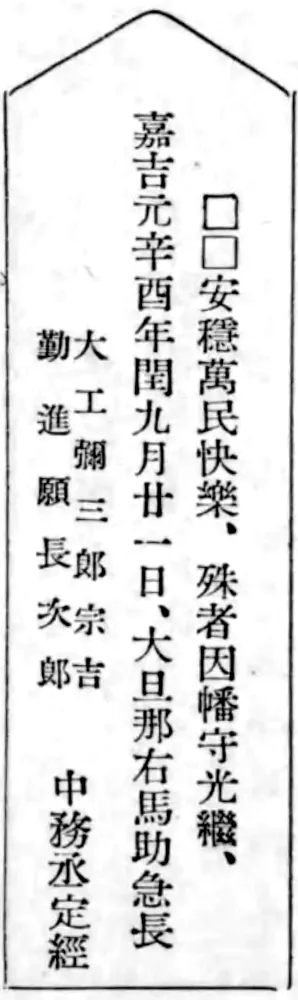 □□安穩萬民快樂、殊者因幡守光繼、
嘉吉元辛酉年閏九月廿一日、大旦那右馬助急長
大工彌三郎宗吉
勤進願長次郎
中務丞定經